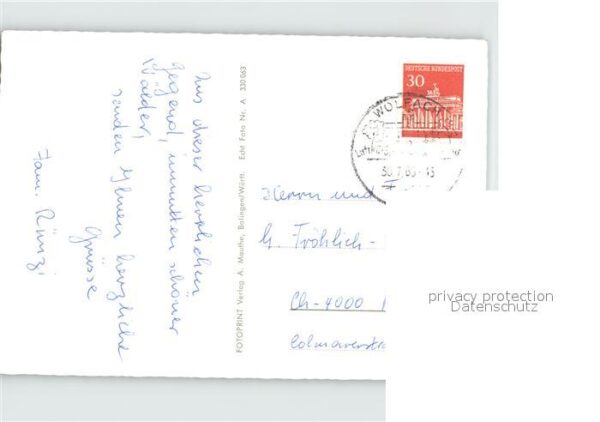 Aus dieser herrlichen
Gegend, inmitten schöner
Wälder,
senden Ihnen herzliche
Grüsse
Fam. Künzi
FOTOPRINT Verlag A. Mauthe, Balingen/Württ. Echt Foto Nr. A 330 063
DEUTSCHE BUNDESPOST
30
WOLFACH
Herrn und
Fröhlich-
CH-4000
Colmarerstra
privacy protection
Datenschutz